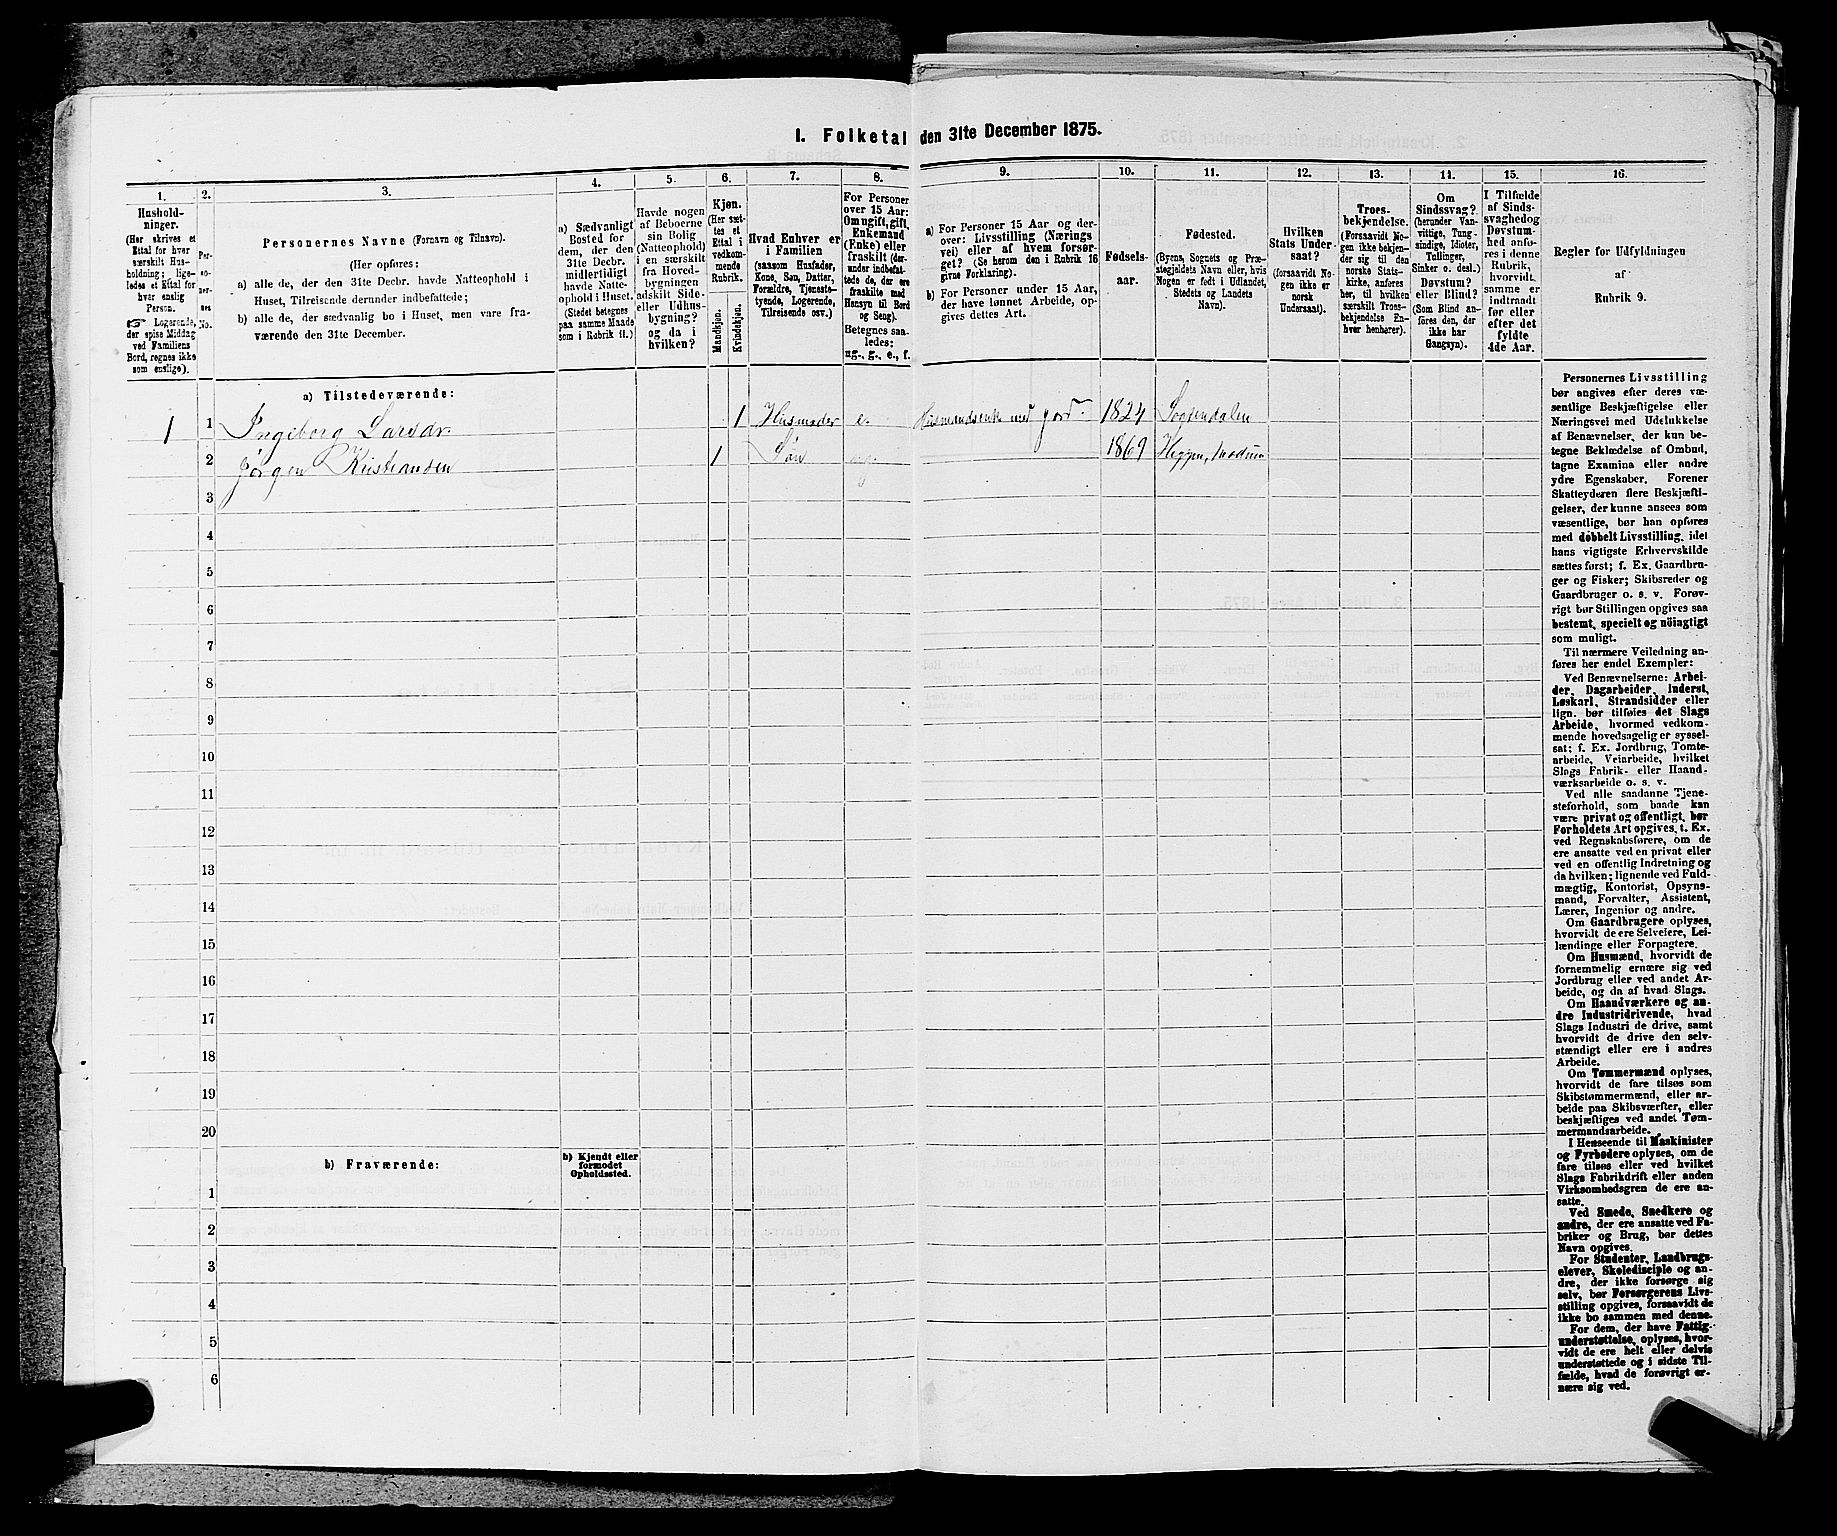 1. Folketal den 31te December 1875.
1.
2.
3.
4.
5.
6.
7.
8.
9.
10.
11.
12.
13.
11.
15.
16.
Hushold-
ninger.
(Her skrives et
Ettal for hver
særskilt Hus-
holdning; lige-
ledes et Ettal for
hver enslig
Person.
☞ Logerende,
der spise Middag
ved Familiens
Bord, regnes ikke
som enslige).
Per-
so-
ner-
nes
No.
Personernes Navne (Fornavn og Tilnavn).
(Her opføres:
a) alle de, der den 31te Decbr. havde Natteophold i
Huset, Tilreisende derunder indbefattede;
b) alle de, der sædvanlig bo i Huset, men vare fra-
værende den 31te December.
a) Sædvanligt
Bosted for
dem, der den
31te Decbr.
midlertidigt
havde Natte-
ophold i Huset.
(Stedet betegnes
paa samme Maade
som i Rubrik 11.)
Havde nogen
af Beboerne
sin Bolig
(Natteophold)
i en særskilt
fra Hoved-
bygningen
adskilt Side-
eller Udhus-
bygning?
og da i
hvilken?
Kjøn.
(Her sæt-
tes et
Ettal i
vedkom-
mende
Rubrik.
Mandkjøn.
Kvindekjøn.
Hvad Enhver er
i Familien
(saasom Husfader,
Kone, Søn, Datter,
Forældre, Tjeneste-
tyende, Logerende,
Tilreisende osv.)
For Personer
over 15 Aar:
Om ugift, gift,
Enkemand
(Enke) eller
fraskilt (der-
under indbefat-
tede de, der ere
fraskilte med
Hensyn til Bord
og Seng).
Betegnes saa-
ledes:
ug., g., e., f.
a) For Personer 15 Aar og der-
over: Livsstilling (Nærings
vei) eller af hvem forsør-
get? (Se herom den i Rubrik 16
givne Forklaring).
b) For Personer under 15 Aar,
der have lønnet Arbeide, op-
gives dettes Art.
Fødsels-
aar.
Fødested.
(Byens, Sognets og Præ-
stegjeldets Navn eller, hvis
Nogen er født i Udlandet,
Stedets og Landets
Navn).
Hvilken
Stats Under-
saat?
(forsaavidt No-
gen ikke er
norsk
Undersaat).
Troes-
bekjendelse.
(Forsaavidt No-
gen ikke bekjen-
der sig til den
norske Stats-
kirke, anføres
her, til hvilken
særskilt Troes-
bekjendelse En-
hver henhører).
Om
Sindssvag?
(herunder Van-
vittige, Tung-
sindige, Idioter,
Tullinger,
Sinker o. desl.)
Døvstum?
eller Blind?
(Som Blind an-
føres den, der
ikke har
Gangsyn).
I Tilfælde
af Sinds-
svaghedog
Døvstum-
hed anfø-
res i denne
Rubrik,
hvorvidt
samme er
indtraadt
før eller
efter det
fyldte
4de Aar.
Regler for Udfyldningen
af
Rubrik 9.
a) Tilstedeværende:
1 1 Ingeborg Larsdr 1 Husmoder e. Husmandsenke med jord 1824 Soggendalen
2 Jørgen Kristiansen 1 Søn ug. 1869 Heggen, Modum
3
4
5
6
7
8
9
10
11
12
13
14
15
16
17
18
19
20
b) Fraværende:
b) Kjendt eller
formodet
Opholdssted.
1
2
3
4
5
6
Personernes Livsstilling
bør angives efter deres væ-
sentlige Beskjæftigelse eller
Næringsvei med Udelukkelse
af Benævnelser, der kun be-
tegne Beklædelse af Ombud,
tagne Examina eller andre
ydre Egenskaber. Forener
Skatteyderen flere Beskjæfti-
gelser, der kunne ansees som
væsentlige, bør han opføres
med dobbelt Livsstilling, idet
hans vigtigste Erhvervskilde
sættes først; f. Ex. Gaardbru-
ger og Fisker; Skibsreder og
Gaardbruger o. s. v. Forøv-
rigt bør Stillingen opgives saa
bestemt, specielt og nöiagtigt
som muligt.
Til nærmere Veiledning an-
føres her endel Exempler:
Ved Benævnelserne: Arbei-
der, Dagarbeider, Inderst,
Løskarl, Strandsidder eller
lign. bør tilføies det Slags
Arbeide, hvormed vedkom-
mende hovedsagelig er syssel-
sat; f. Ex. Jordbrug, Tomte-
arbeide, Veiarbeide, hvilket
Slags Fabrik- eller Haand-
værksarbeide o. s. v.
Ved alle saadanne Tjene-
steforhold, som baade kan
være privat og offentligt, bør
Forholdets Art opgives, t. Ex.
ved Regnskabsførere, om de
ere ansatte ved en privat eller
ved en offentlig Indretning og
da hvilken; lignende ved Fuld-
mægtig, Kontorist, Opsyns-
mand, Forvalter, Assistent,
Lærer, Ingeniør og andre.
Om Gaardbrugere oplyses,
hvorvidt de ere Selveiere, Lei-
lændinge eller Forpagtere.
Om Husmænd, hvorvidt de
fornemmelig ernære sig ved
Jordbrug eller ved andet Ar-
beide, og da af hvad Slags.
Om Haandværkere og an-
dre Industridrivende, hvad
Slags Industri de drive, samt
hvorvidt de drive den selv-
stændigt eller ere i andres
Arbeide.
Om Tømmermænd oplyses,
hvorvidt de fare tilsøs som
Skibstømmermænd, eller ar-
beide paa Skibsværfter, eller
beskjæftiges ved andet Tøm-
mermandsarbeide.
I Henseende til Maskinister
og Fyrbødere oplyses, om de
fare tilsøs eller ved hvilket
Slags Fabrikdrift eller anden
Virksomhedsgren de ere an-
satte.
Ved Smede, Snedkere og
andre, der ere ansatte ved Fa-
briker og Brug, bør dettes
Navn opgives.
For Studenter, Landbrugs-
elever, Skoledisciple og an-
dre, der ikke forsørge sig
selv, bør Forsørgerens Livs-
stilling opgives, forsaavidt de
ikke bo sammen med denne.
For dem, der have Fattig-
understøttelse, oplyses, hvor-
vidt de ere helt eller delvis
understøttede og i sidste Til-
fælde, hvad de forøvrigt er-
nære sig ved.